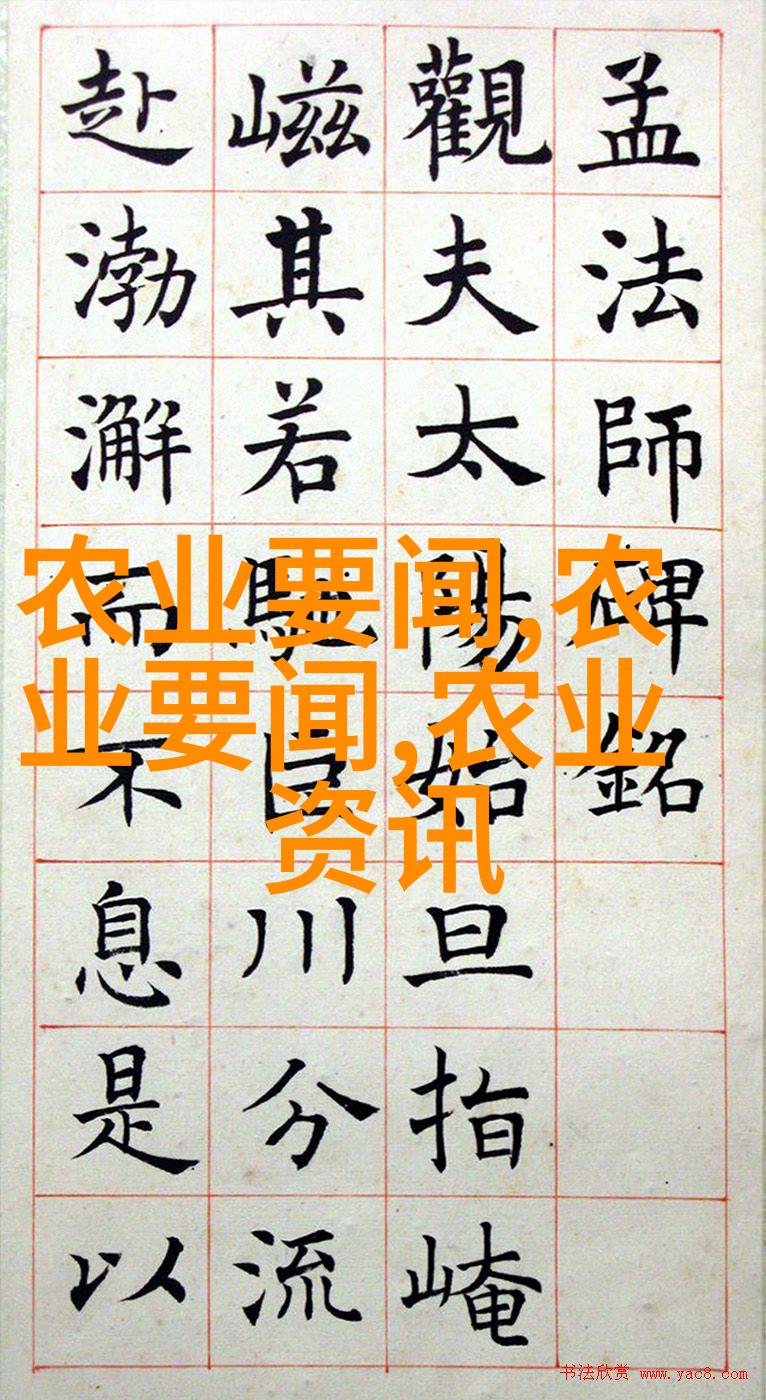 孟法師碑銘
觀夫太陽始旦指崦
嵫其若馳巨川分流
赴渤澥而不息是以
农业要闻,农
业要闻,农业
资讯
书法欣赏 www.yac8.com